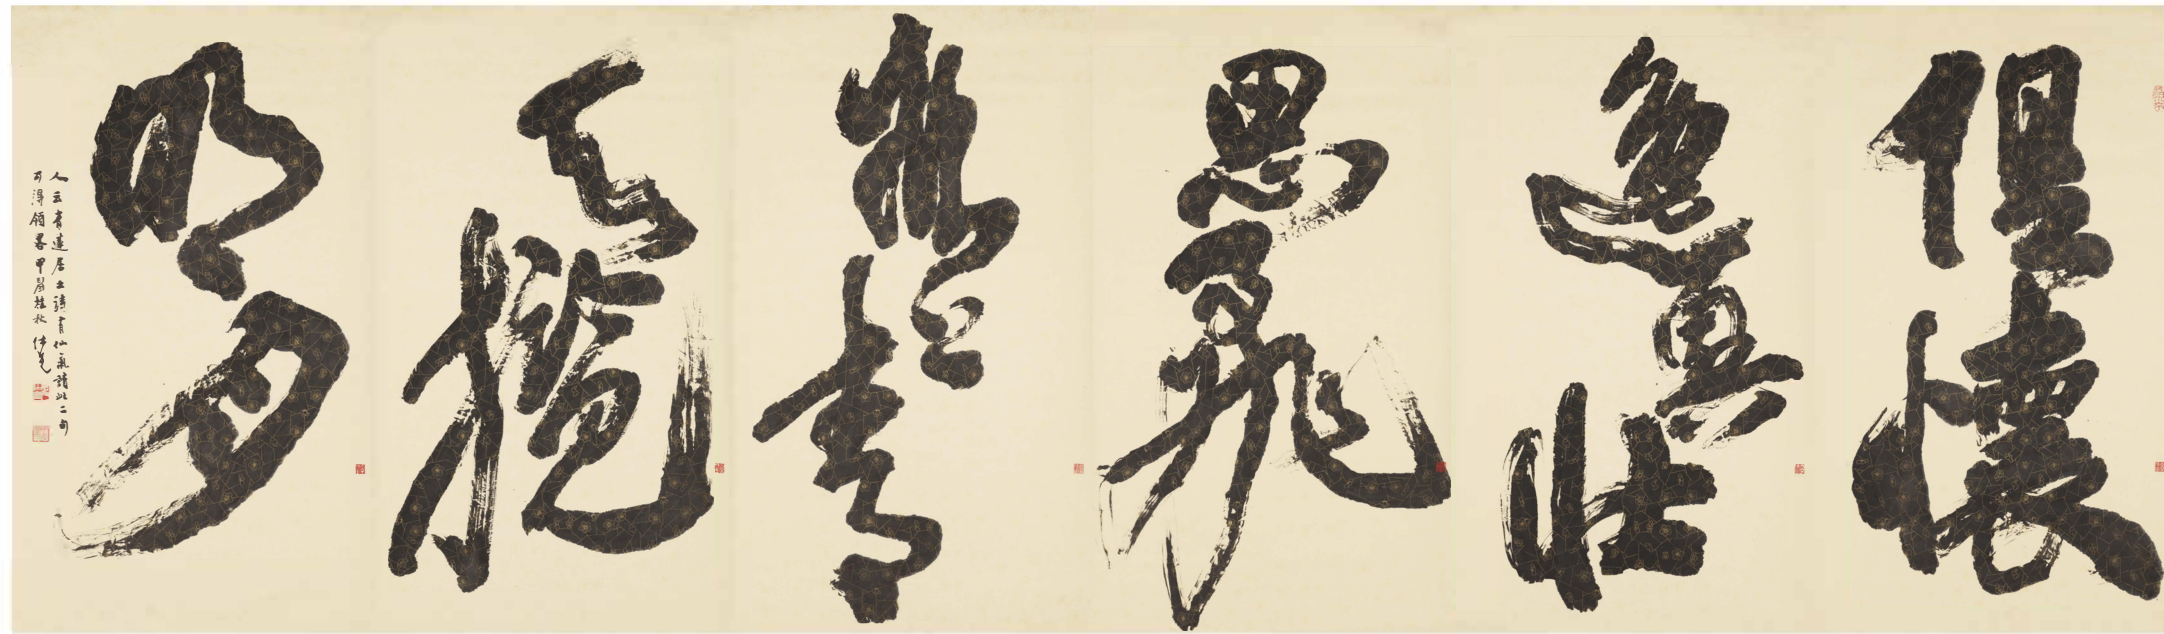 俱懷
逸興壯
思飛
欲上青
天攬
明月
人云青蓮居士詩有仙氣讀此二句
可得領畧甲桂秋